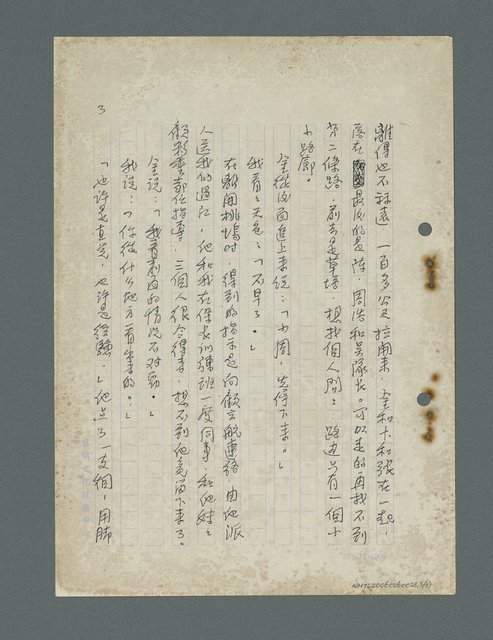 離得也不算遠 一百多公尺拉開來．金和卡和張在一起，
落在最後的是陳．周浩和吳隊長。可以走的再找不到
第二條路．前去是草塔．想找個人問々 路邊只有一個小
小路廊。
金從後面追上來說：「小周，先停下來。」
我看々天色：「不早了。」
在離開桃塢時．得到的指示是向顧玄航連絡．由他派
人送我們過江．他和我在保安訓練班一度同事．和他姓々
顧彩雲鄰位指導．三個人很合得來．想不到他竟留下來了。
金說：「我看前面的情況不對勁。」
我說：「你從什麼地方看出來的。」
「也許是直覺，也許是經驗。」他点了一支烟，用肺
3
NMTL00060260028